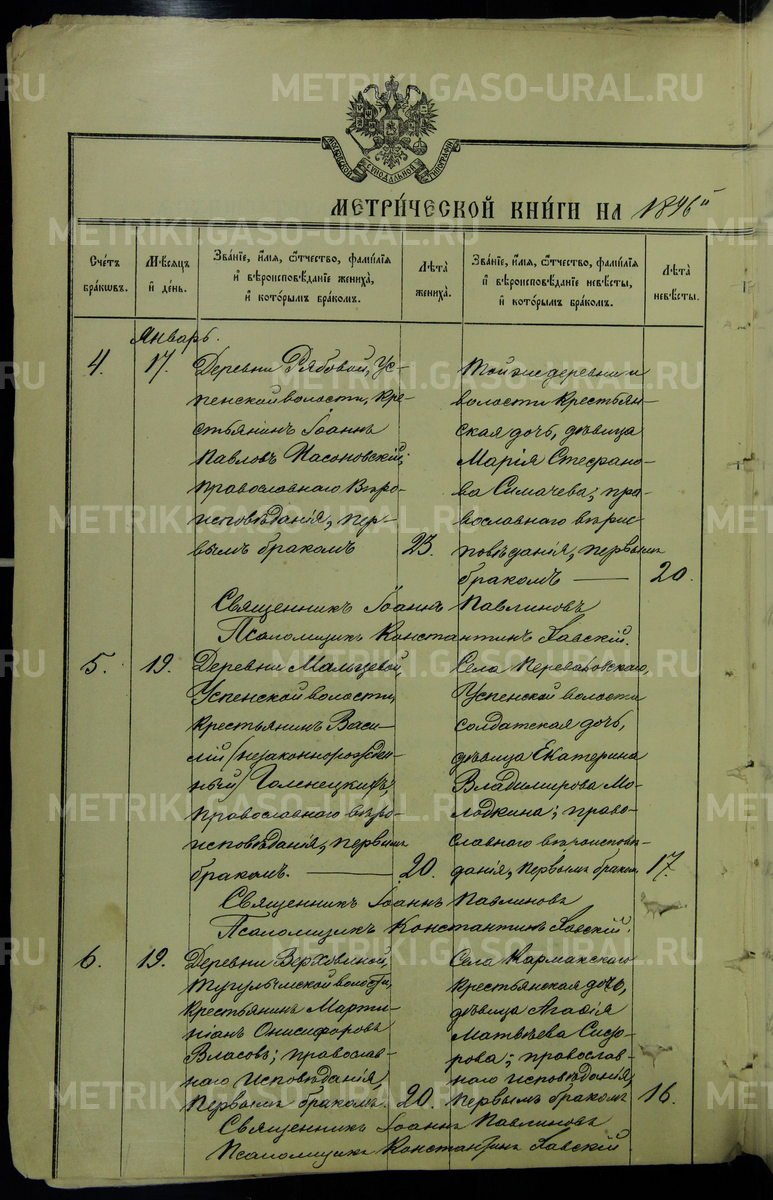 METRIKI.GASO-URAL.RU
МОСКОВСКОЙ СѴНОДАЛЬНОЙ ТИПОГРАФІИ
МЕТРИ́ЧЕСКОЙ КНИ́ГИ НА 1896й
Счетъ бракѡвъ.
Мѣсяцъ и день.
Званіе, имя, ѻтчество, фамилія и вѣроисповѣданіе жениха, и которымъ бракомъ.
Лѣта жениха.
Званіе, имя, ѻтчество, фамилія и вѣроисповѣданіе невѣсты, и которымъ бракомъ.
Лѣта невѣсты.
Январь.
4.
17.
Деревни Рябовой, Ус-
пенской волости, кре-
стьянинъ Іоаннъ
Павловъ Насоновскій;
православнаго вѣро-
исповѣданія, пер-
вымъ бракомъ
23.
Той же деревни и
волости крестьян-
ская дочь, дѣвица
Марія Стефано-
ва Симачева; пра-
вославнаго вѣрис
повѣданія, первымъ
бракомъ —
20.
Священникъ Іоаннъ Павлиновъ
Псаломщикъ Константинъ Хавскій.
5.
19.
Деревни Мальцевой,
Успенской волости,
крестьянинъ Васи-
лій /незаконнорожден-
ный/ Голенецкихъ;
православнаго вѣро-
исповѣданія, первымъ
бракомъ. —
20.
Села Перевановскаго,
Успенской волости
солдатская дочь,
дѣвица Екатерина
Владимирова Мо-
лодкина; право-
славнаго вѣроисповѣ-
данія, первымъ браком.
17.
Священникъ Іоаннъ Павлиновъ
Псаломщикъ Константинъ Хавскій.
6.
19.
Деревни Верховиной,
Тугулымской волости,
крестьянинъ Марти-
ніанъ Онисифоровъ
Власовъ; православ-
наго исповѣданія,
первымъ бракомъ.
20.
Села Кармакскаго
крестьянская дочь,
дѣвица Агафія
Матвѣева Сидо-
рова; православ-
наго исповѣданія,
первымъ бракомъ
16.
Священникъ Іоаннъ Павлиновъ
Псаломщикъ Константинъ Хавскій